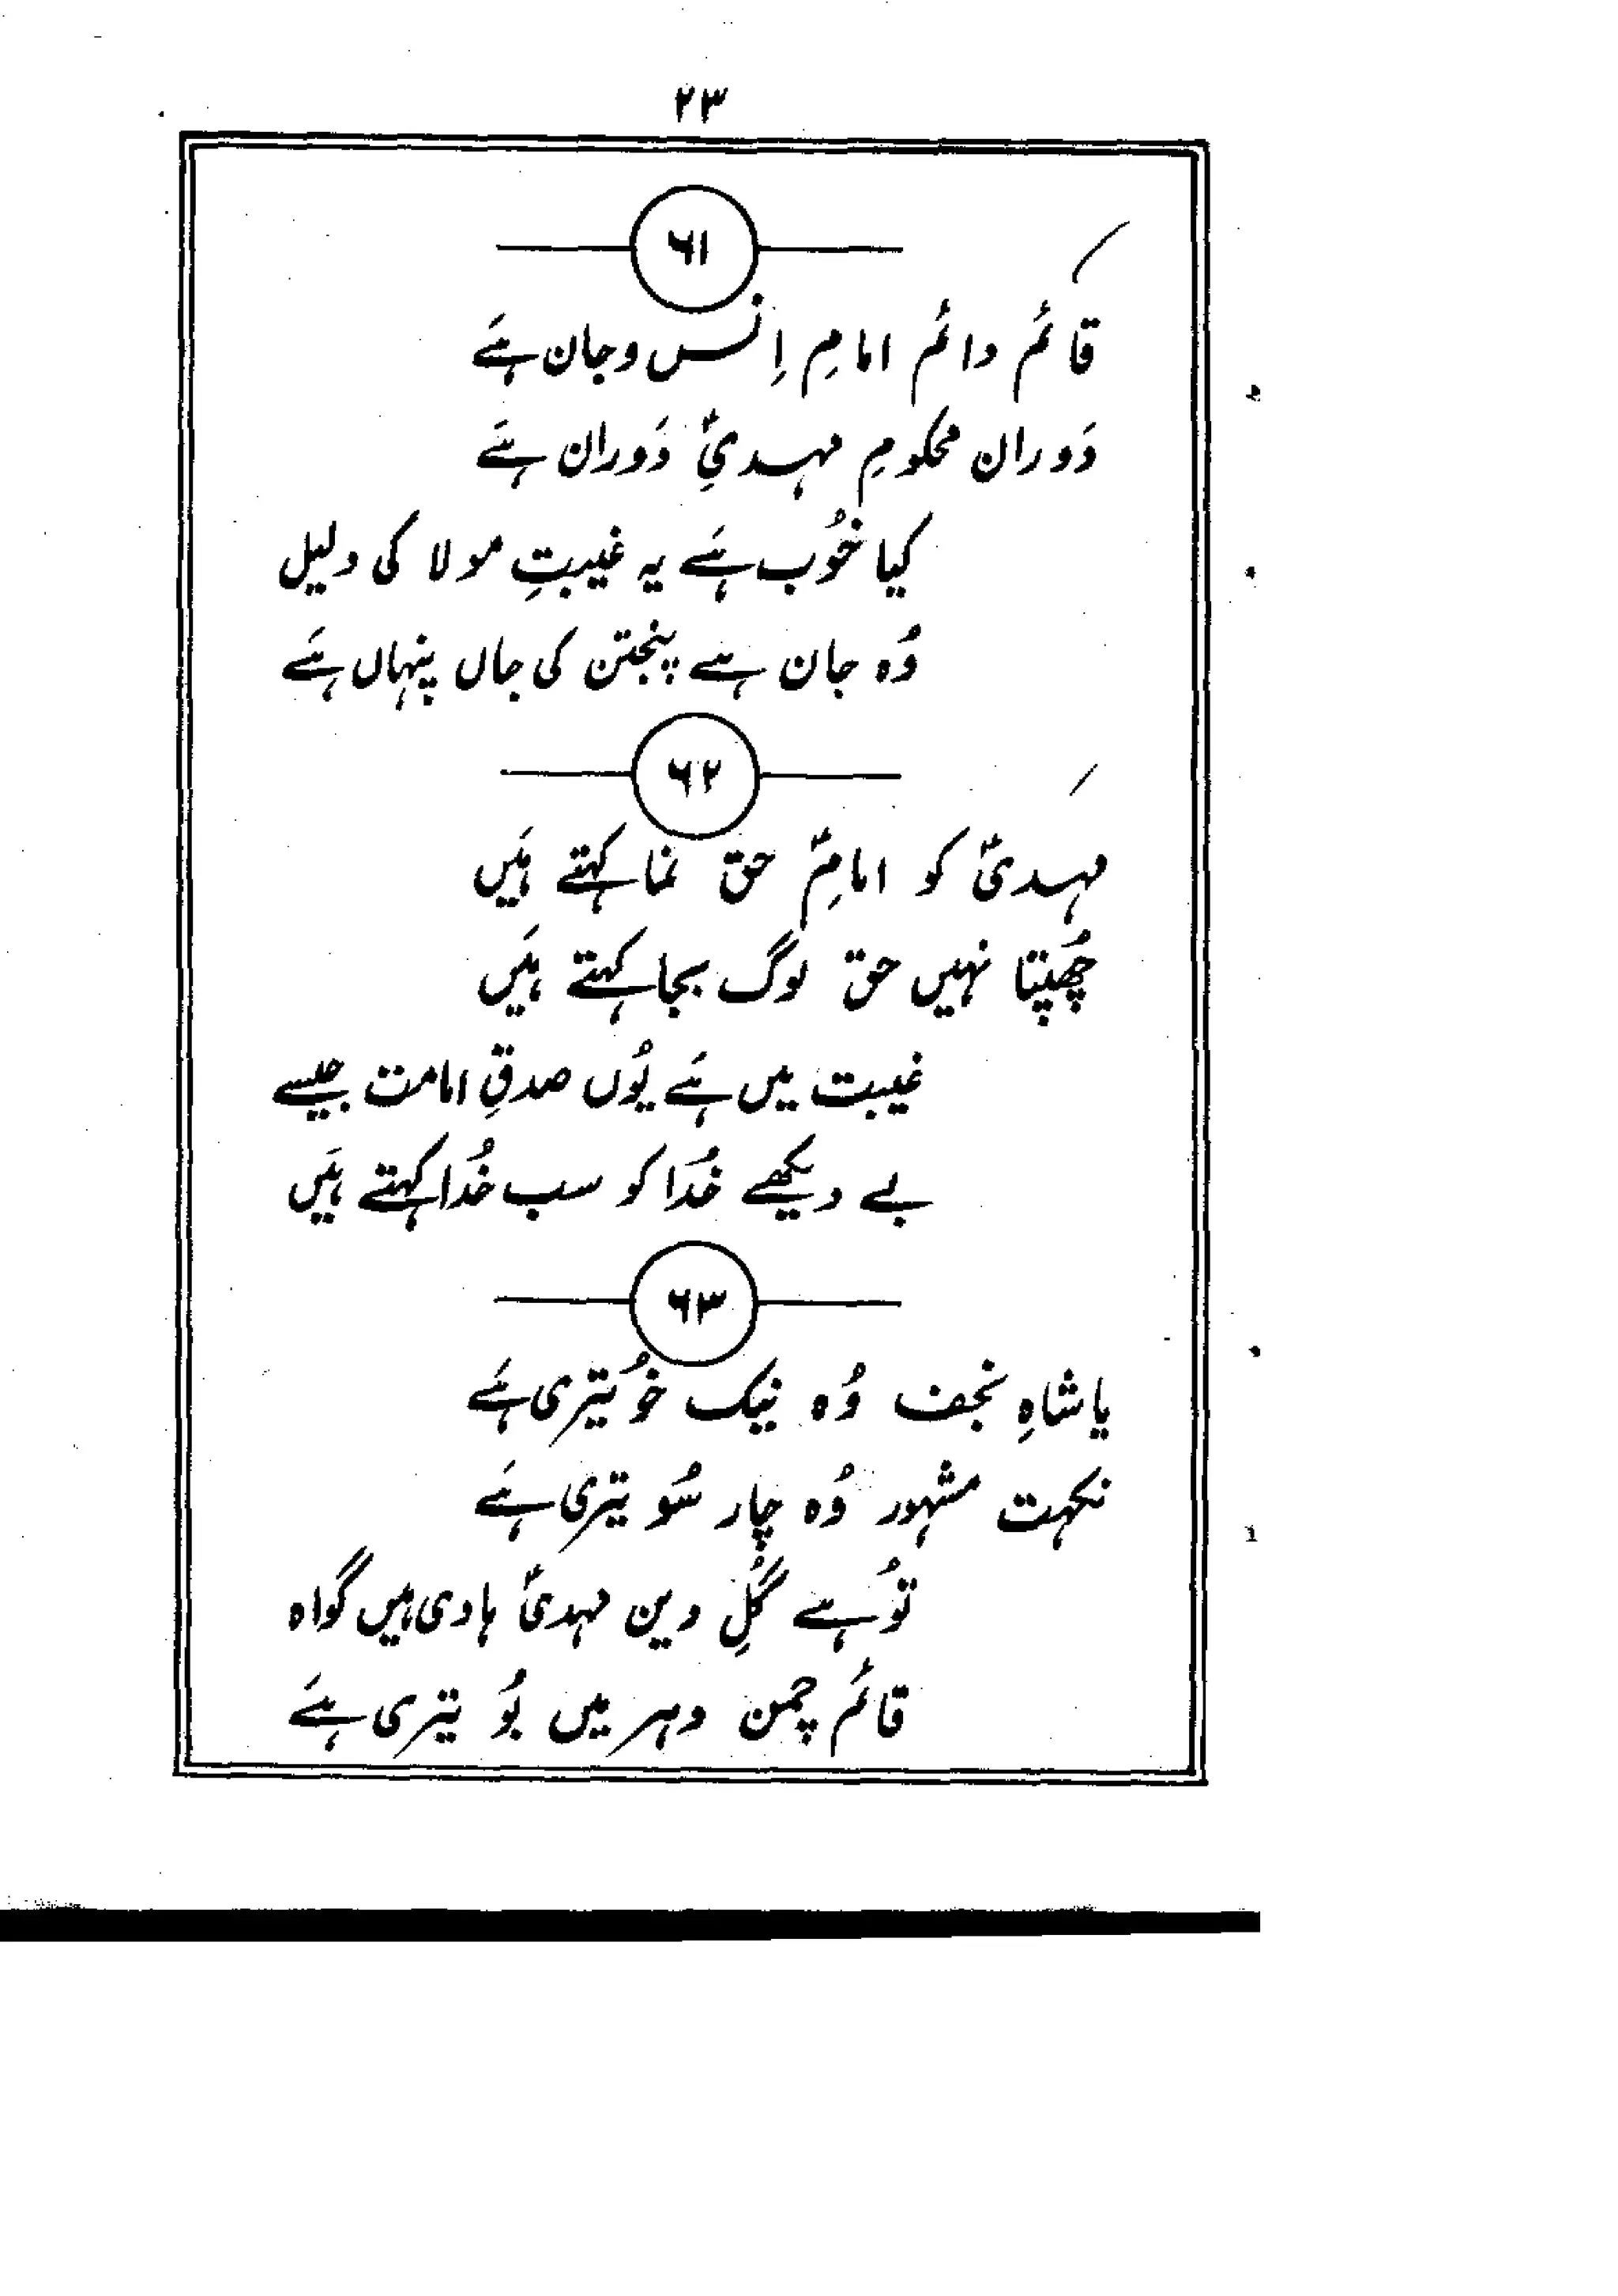 ۲۳
۶۱
قائم دائم امامِ اِنس و جان ہَے
دَوران محکومِ مہدیِؑ دَوران ہَے
کیا خُوب ہَے یہ غیبتِ مولا کی دلیل
وُہ جان ہے پنجتن کی جاں پنہاں ہَے
۶۲
مہدیؑ کو امامِؑ حق نما کہتے ہَیں
چُھپتا نہیں حق لوگ بجا کہتے ہَیں
غیبت میں ہَے یُوں صدقِ امامت جیسے
بے دیکھے خُدا کو سب خُدا کہتے ہَیں
۶۳
یا شاہِ نجف وُہ نیک خُو تیری ہَے
نکہت مشہور وُہ چار سُو تیری ہَے
تُو ہے گُلِ دین مہدیؑ ہادی ہیں گواہ
قائم چمن دہر میں بُو تیری ہَے